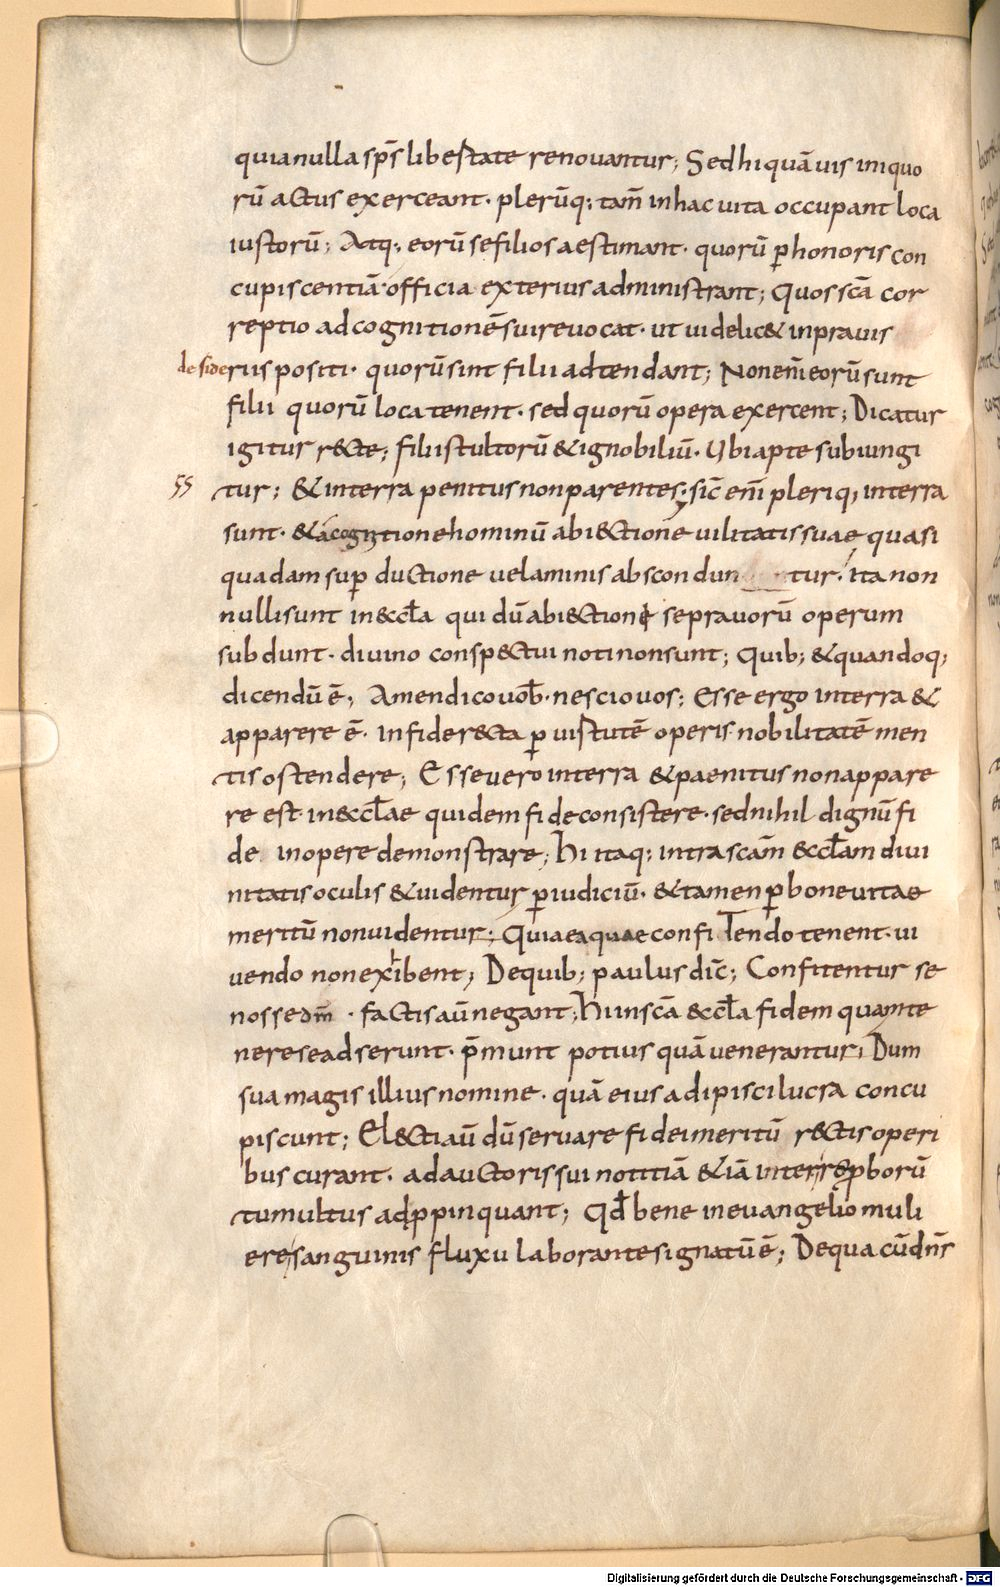 quia nulla sp̄s libertate renovantur; Sed hi quā vis iniquo
rū actus exerceant · plerūq; tam̄ in hac vita occupant loca
iustorū; Atq; eorū se filios aestimant · quorū ꝑ honoris con
cupiscentiā officia exterius administrant; Quos sc̄a cor
reptio ad cognitionē sui revocat · ut videlic& in pravis
desideriis positi · quorū sint filii adtendant; Non eni̅ eorū sunt
filii quorū loca tenent · sed quorū opera exercent; Dicatur
igitur recte; filii stultorū & ignobiliū · Ubi apte subiungi
55 tur; & in terra penitus non parentes · sic̄ eni̅ pleriq; in terra
sunt · & a cognitione hominū abiectione vilitatis suae quasi
quadam suꝑ ductione velaminis abscondun tur · ita non
nulli sunt in eccl̄a qui dū abiectione se pravorū operum
subdunt · divino conspectui noti non sunt; Quib; & quandoq;
dicendū ē; Amen dico vob̄ · nescio vos; Esse ergo in terra &
apparere ē · in fide recta ꝑ virtutē operis nobilitatē men
tis ostendere; Esse vero in terra & paenitus non appare
re est · in eccl̄ae quidem fide consistere · sed nihil dignū fi
de in opere demonstrare; Hi itaq; intra sc̄am eccl̄am divi
nitatis oculis & videntur ꝑ iudiciū · & tamen ꝑ bone vitae
meritū non videntur; Quia ea quae confiTendo tenent · vi
vendo non exhibent; De quib; paulus dic̄; Confitentur se
nosse dm̄ · factis aū negant; Hi in sc̄a eccl̄a fidem quam te
nere se adserunt · p̄munt potius quā venerantur; Dum
sua magis illius nomine · quā eius adipisci lucra concu
piscunt; Electi aū dū servare fidei meritū rectis operi
bus curant · ad auctoris sui notitiā & iā inter reꝓborū
tumultus adꝓpinquant; Qd̄ bene in evangelio muli
ere sanguinis fluxu laborante signatū ē; De qua cū dn̄s
Digitalisierung gefördert durch die Deutsche Forschungsgemeinschaft - DFG